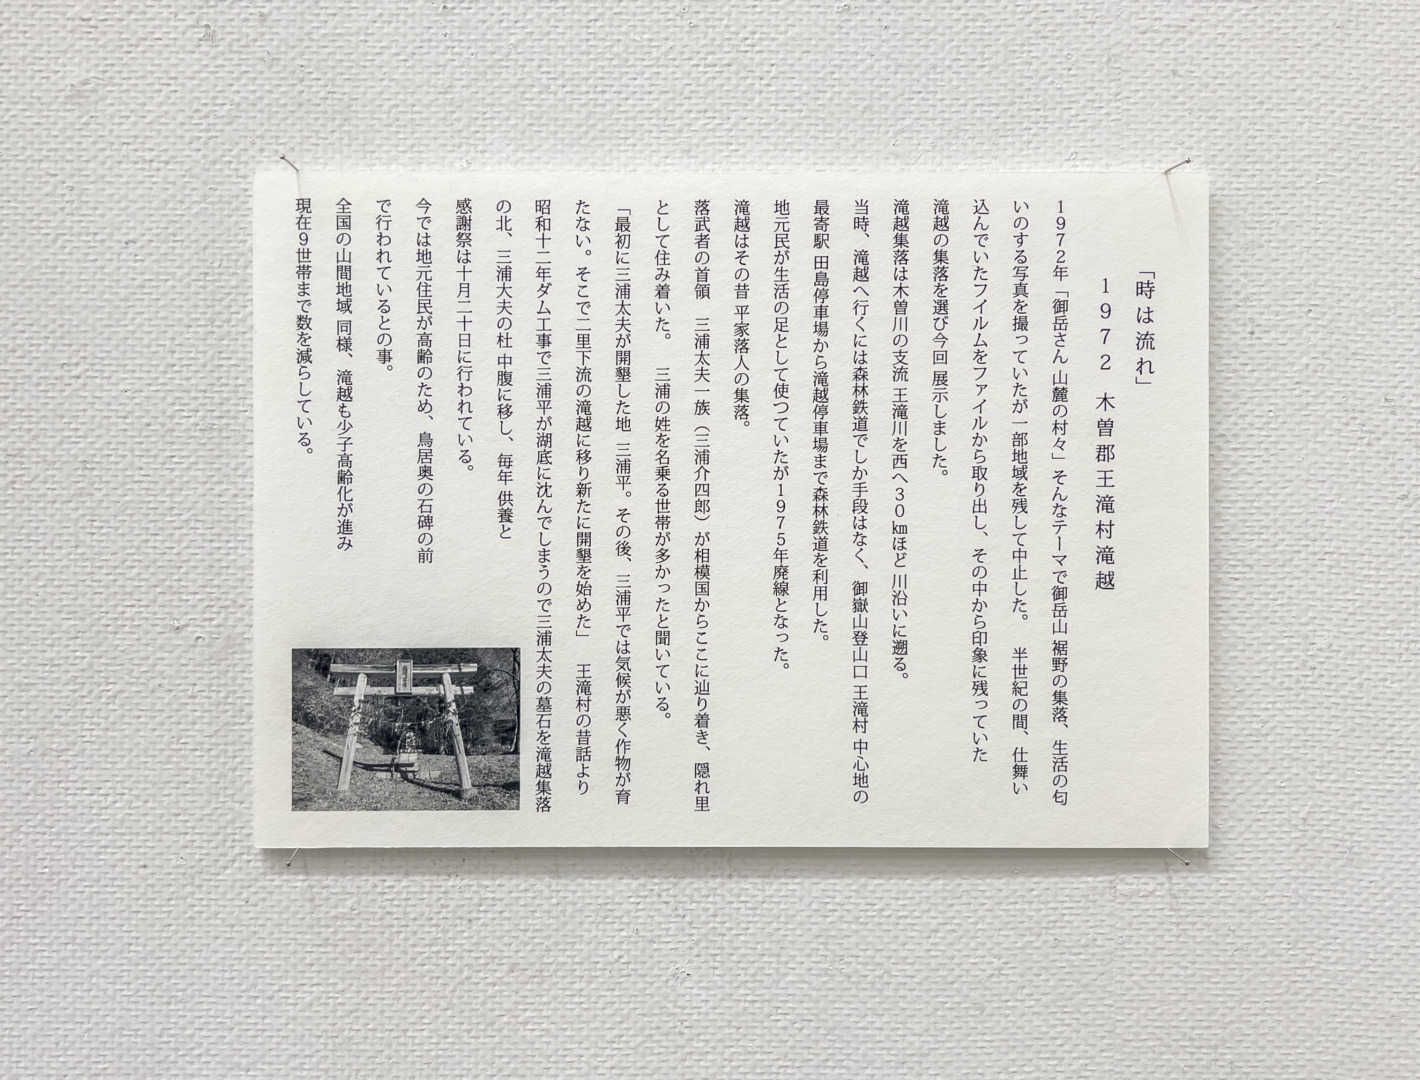 「時は流れ」
１９７２　木曽郡王滝村滝越
１９７２年「御岳さん 山麓の村々」そんなテーマで御岳山 裾野の集落、生活の匂
いのする写真を撮っていたが一部地域を残して中止した。　半世紀の間、仕舞い
込んでいたフイルムをファイルから取り出し、その中から印象に残っていた
滝越の集落を選び今回 展示しました。
滝越集落は木曽川の支流 王滝川を西へ３０㎞ほど 川沿いに遡る。
当時、滝越へ行くには森林鉄道でしか手段はなく、御嶽山登山口 王滝村 中心地の
最寄駅 田島停車場から滝越停車場まで森林鉄道を利用した。
地元民が生活の足として使つていたが１９７５年廃線となった。
滝越はその昔 平家落人の集落。
落武者の首領　三浦太夫一族（三浦介四郎）が相模国からここに辿り着き、隠れ里
として住み着いた。　三浦の姓を名乗る世帯が多かったと聞いている。
「最初に三浦太夫が開墾した地 三浦平。その後、三浦平では気候が悪く作物が育
たない。そこで二里下流の滝越に移り新たに開墾を始めた」　王滝村の昔話より
昭和十二年ダム工事で三浦平が湖底に沈んでしまうので三浦太夫の墓石を滝越集落
の北、三浦大夫の杜 中腹に移し、毎年 供養と
感謝祭は十月二十日に行われている。
今では地元住民が高齢のため、鳥居奥の石碑の前
で行われているとの事。
全国の山間地域 同様、滝越も少子高齢化が進み
現在９世帯まで数を減らしている。